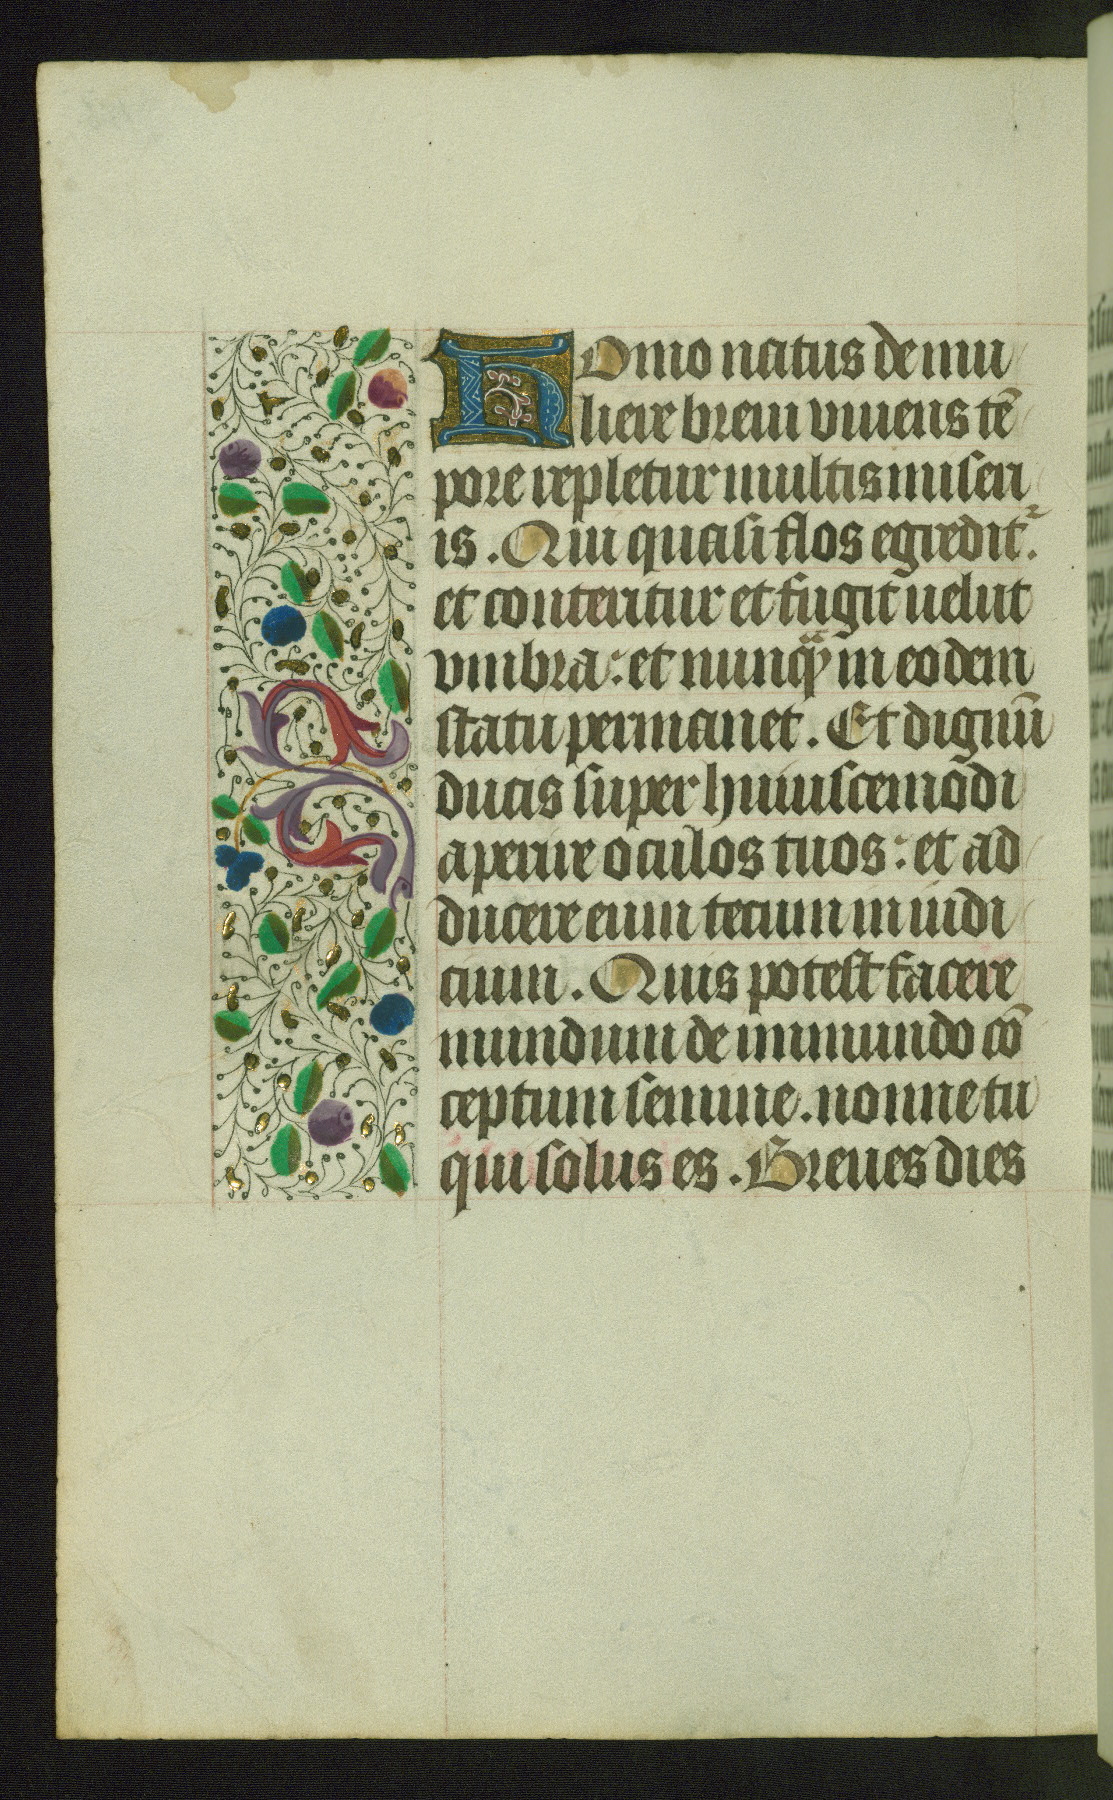 Homo natus de mu
liere breui viuens tē
pore repletur multis miseri
is. Qui quasi flos egredit᷑.
et conteritur et fugit uelut
vmbra: et nunqͣꝫ in eodem
statu permanet. Et dignū
ducis super huiuscemodi
aperire oculos tuos: et ad
ducere eum tecum in iudi
cium. Quis potest facere
mundum de immundo cō
ceptum semine. nonne tu
qui solus es. Breues dies